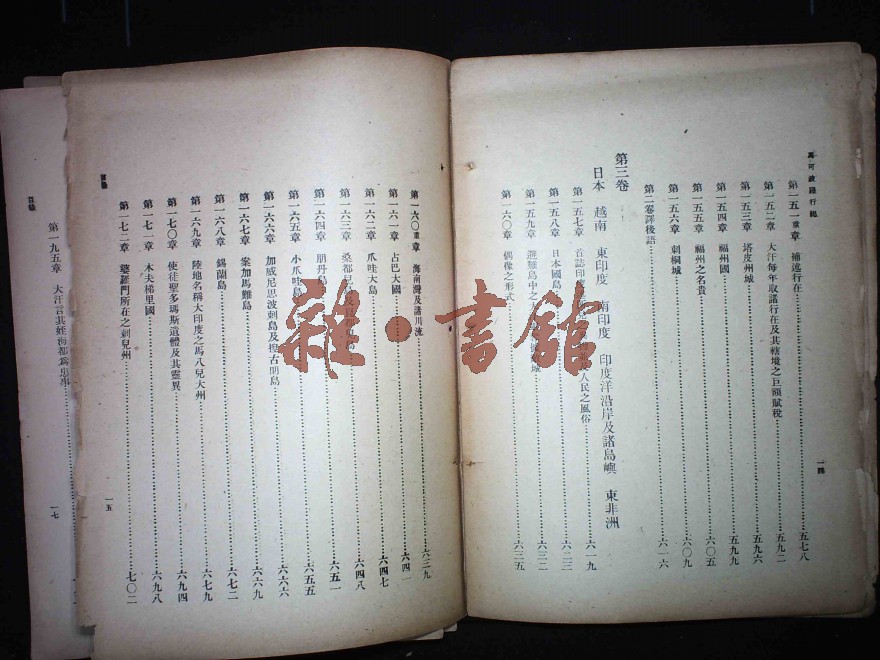 馬可波羅行紀
第一五一重章 補述行在……五七八
第一五二章 大汗每年取諸行在及其轄境之巨額賦稅……五九二
第一五三章 塔皮州城……五九六
第一五四章 福州國……五九九
第一五五章 福州之名貴……六〇五
第一五六章 刺桐城……六〇九
第二卷譯後語……六一六
第三卷
日本 越南 東印度 南印度 印度洋沿岸及諸島嶼 東非洲
第一五七章 首誌印度 人民之風俗……六一九
第一五八章 日本國島……六二三
第一五九章 島中之 城……六三二
第一六〇章 偶像之形式……六三五
一四
第一六〇重章 海南灣及諸川流……六三九
第一六一章 占巴大國……六四一
第一六二章 爪哇大島……六四七
第一六三章 桑都兒島及 島……六四八
第一六四章 朋丹島……六五一
第一六五章 小爪哇島……六五五
第一六六章 加威尼思波剌島及揑古朗島……六六六
第一六七章 案加馬難島……六六九
第一六八章 錫蘭島……六七二
第一六九章 陸地名稱大印度之馬八兒大州……六七九
第一七〇章 使徒聖多瑪斯遺體及其靈異……六九四
第一七一章 木夫梯里國……六九八
第一七二章 婆羅門所在之剌兒州……七〇二
目錄
一五
第一九五章 大汗言其姪海都爲患事
目錄
一七
雜·書館